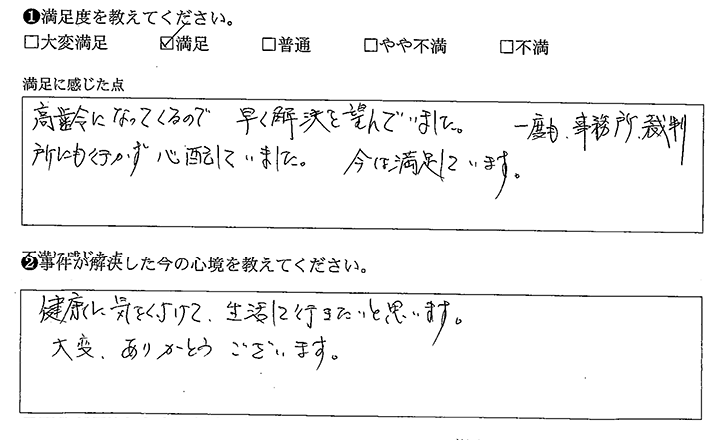 ❶満足度を教えてください。
□大変満足 ☑満足 □普通 □やや不満 □不満
満足に感じた点
高齢になってくるので 早く解決を望んでいました。 一度も、事務所、裁判
所にも行かず心配していました。 今は満足しています。
❷事件が解決した今の心境を教えてください。
健康に気をく付けて、生活して行きたいと思います。
大変、ありがとうございます。